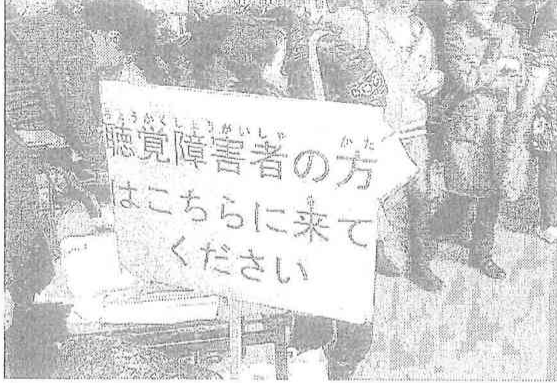 ちょうかくしょうがいしゃ かた
聴覚障害者の方
き
はこちらに来て
ください